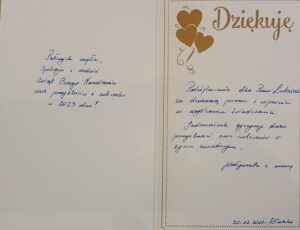 Pełnych ciepła,
Spokoju i radości
Świąt Bożego Narodzenia
oraz pomyślności i sukcesów
w 2023 roku!
Dziękuję
Podziękowanie dla Pana Łukasza
za okazaną pomoc i wsparcie
w uzyskaniu świadczenia.
Jednocześnie życzymy dużo
pomyślności oraz sukcesów w
życiu zawodowym.
Małgorzata z mamą
20.12.2022r.